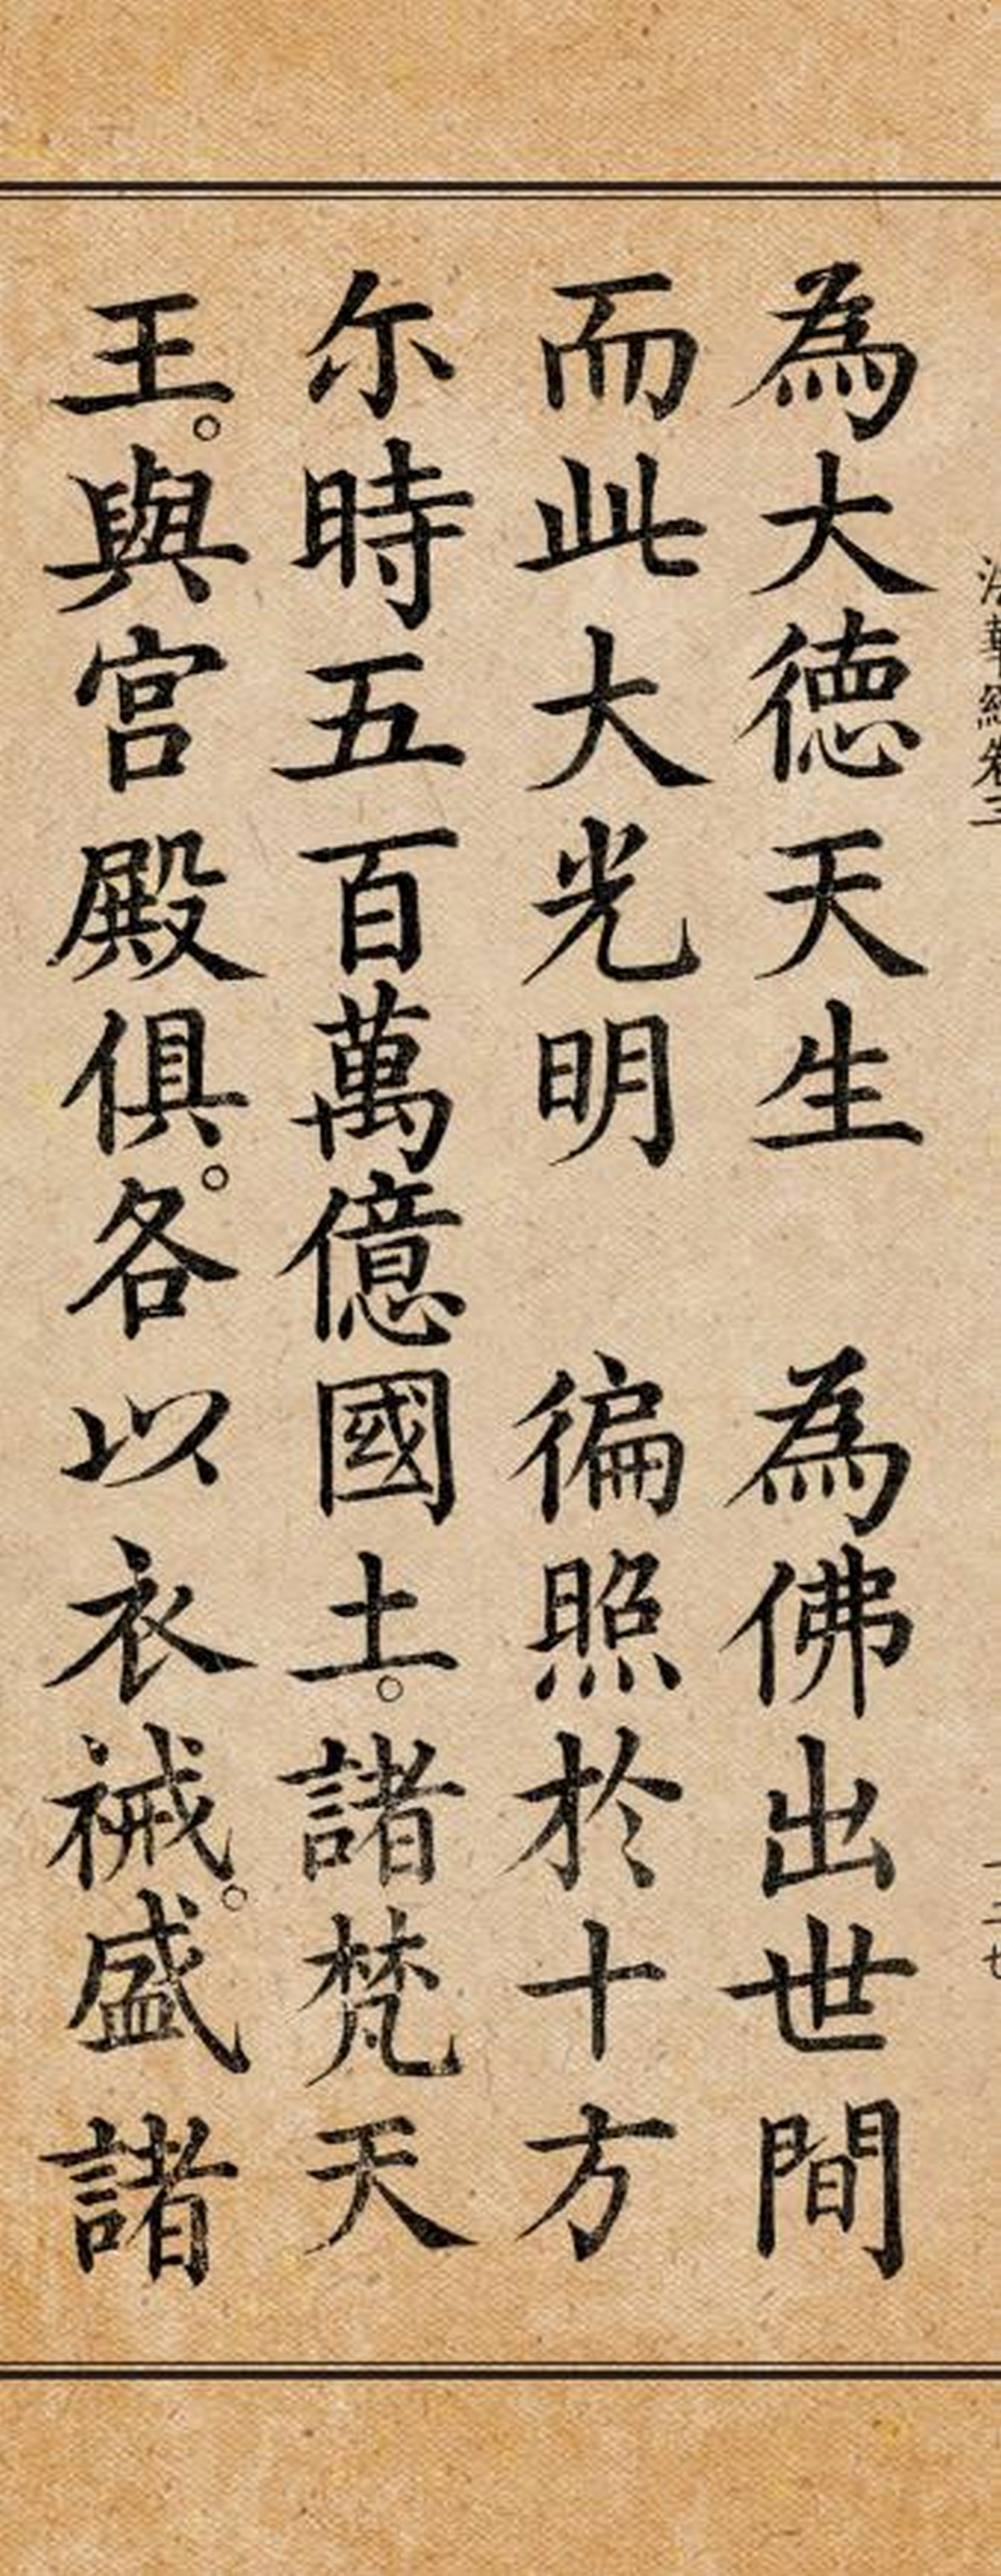 法華經卷三
為大徳天生　為佛出世間
而此大光明　徧照於十方
尔時五百萬億國土。諸梵天
王。與宮殿俱。各以衣祴。盛諸